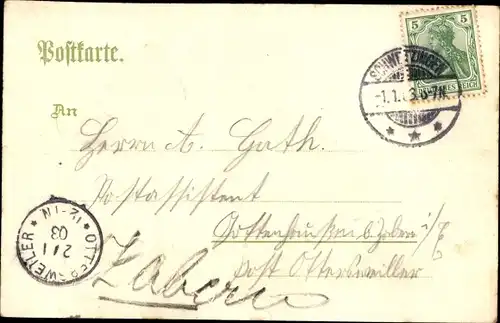 Postkarte.
5 5
DEUTSCHES REICH
SCHWETZINGEN
-1.1.03.6-7N.
An
Herrn A. Gath.
Postassistent
b. Zabern i/E
post Ottersweiler
Zabern
OTTERSWEILER * 12-1N *
2/1
03